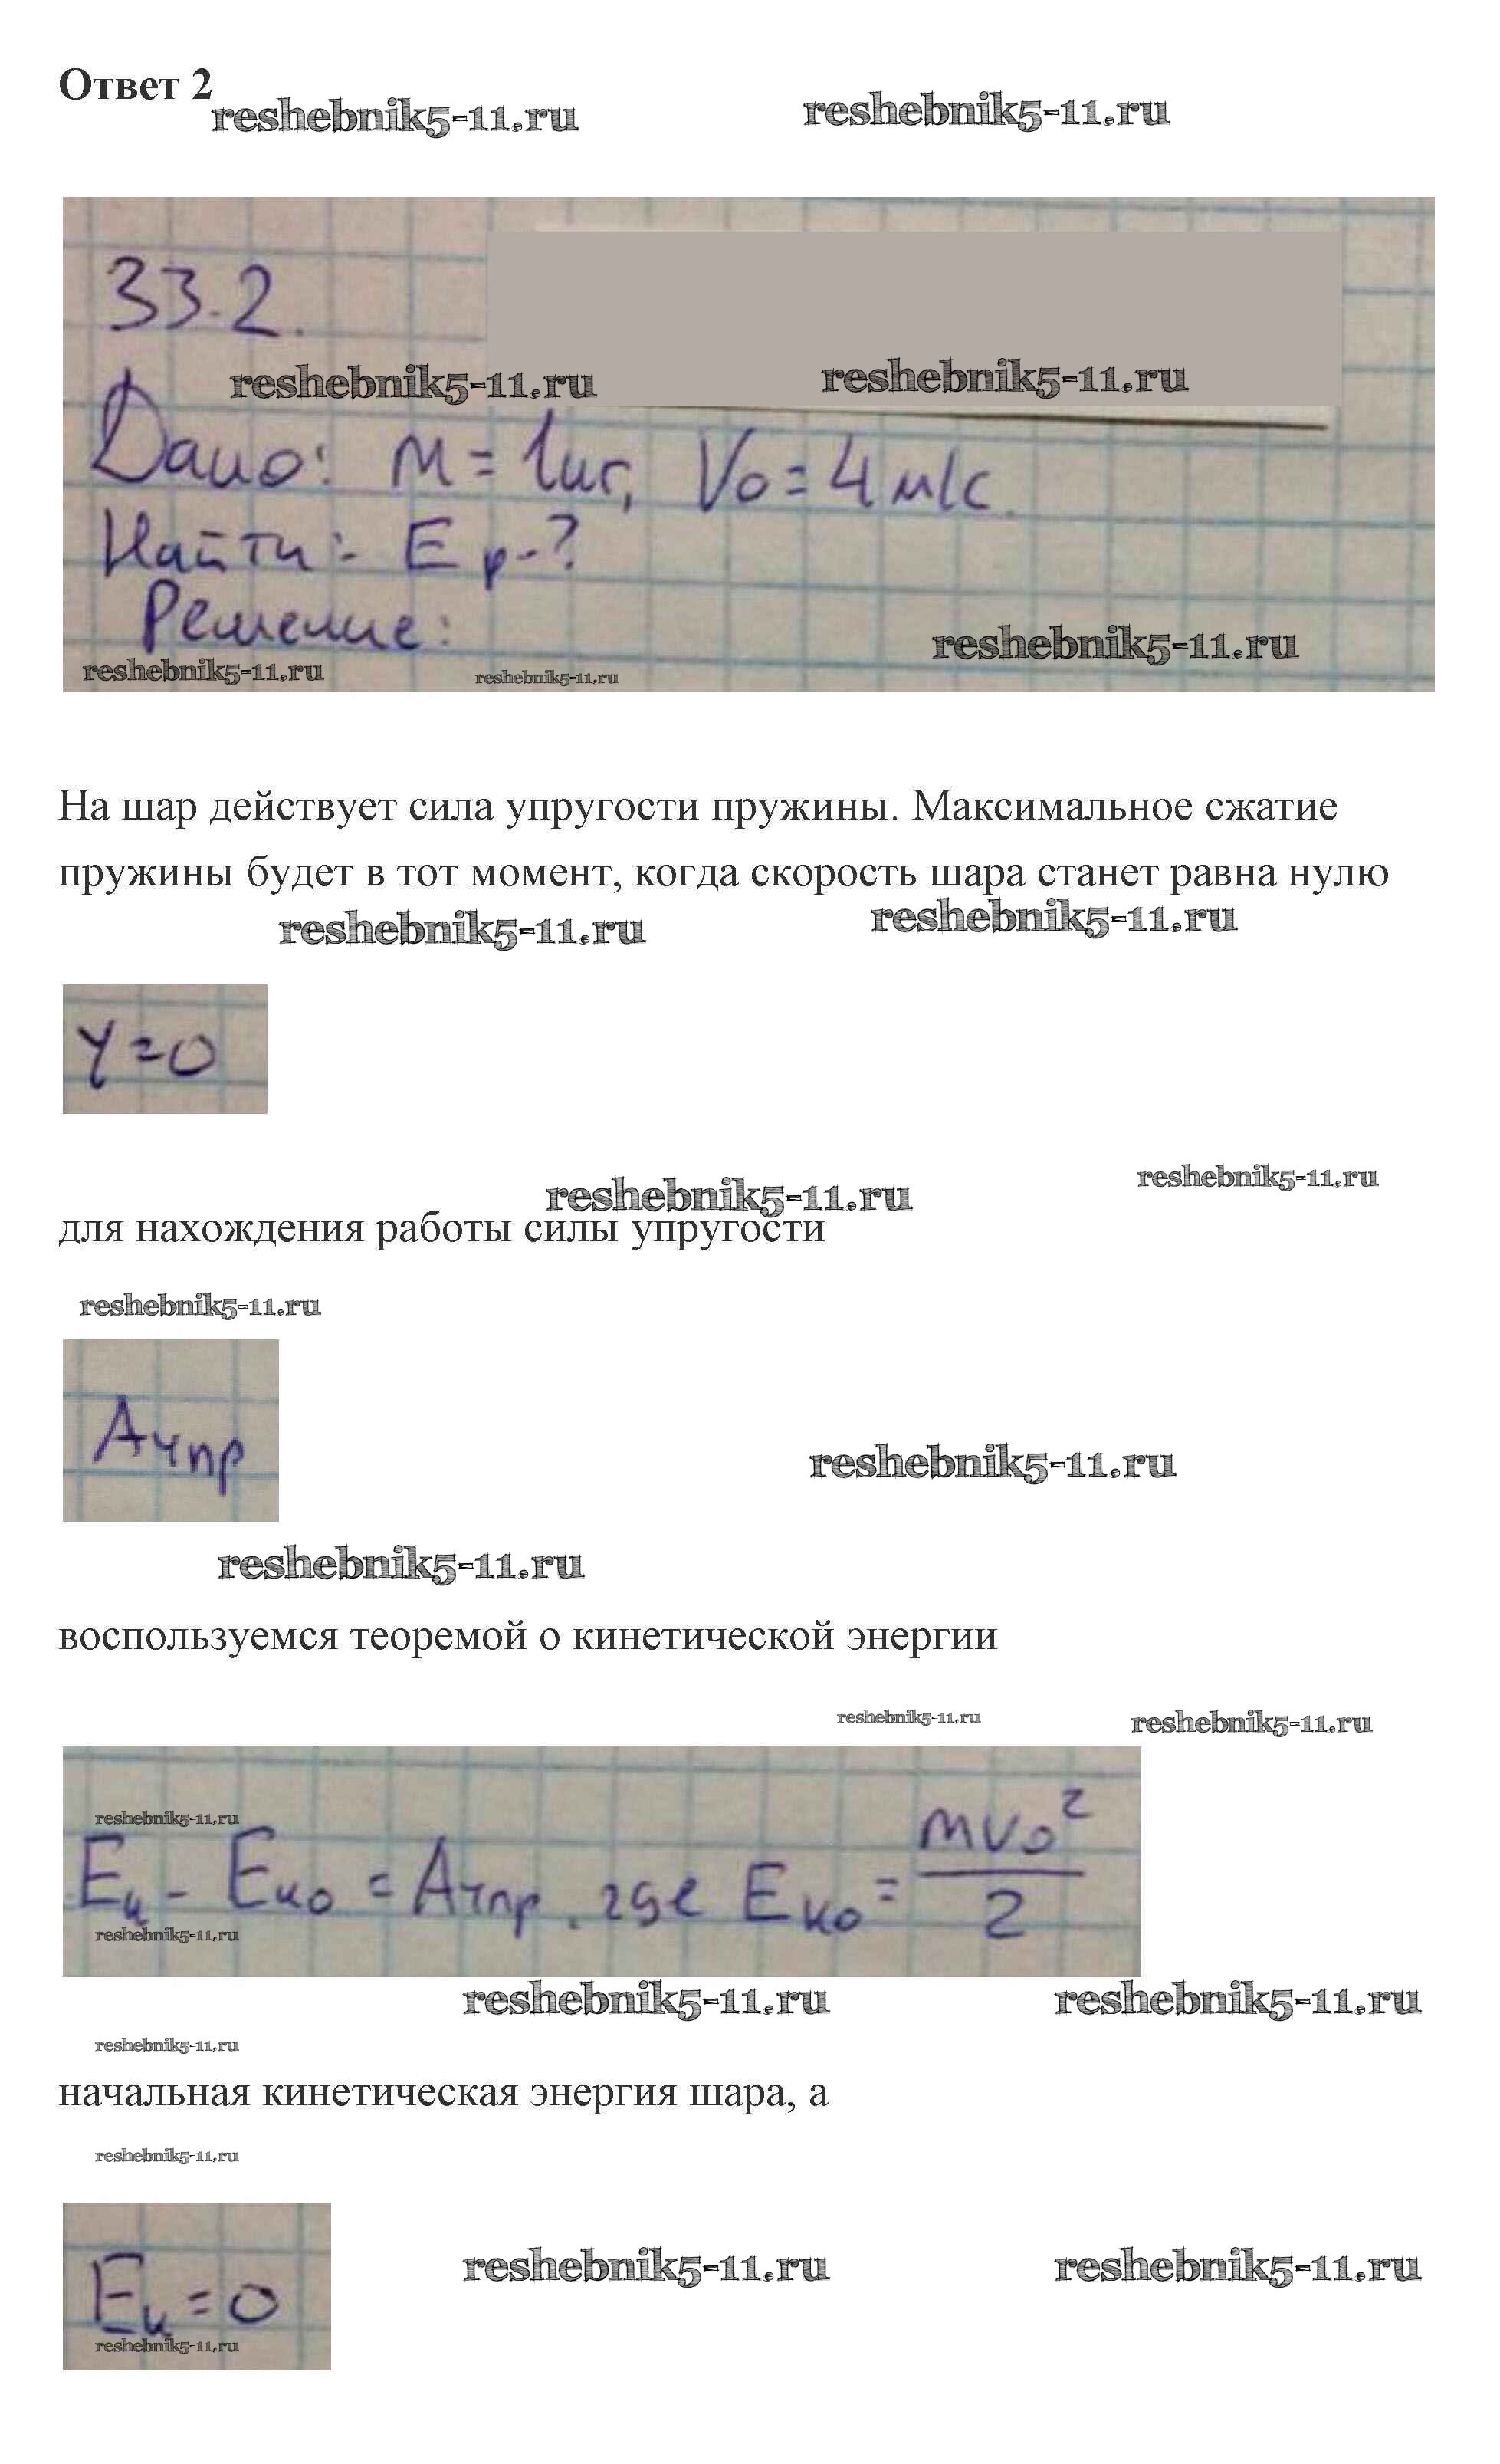 Ответ 2
reshebnik5-11.ru reshebnik5-11.ru
33.2.
reshebnik5-11.ru reshebnik5-11.ru
Дано: m = 1кг, V0 = 4 м/с.
Найти: Eр-?
Решение:
reshebnik5-11.ru
reshebnik5-11.ru reshebnik5-11.ru
На шар действует сила упругости пружины. Максимальное сжатие
пружины будет в тот момент, когда скорость шара станет равна нулю
reshebnik5-11.ru reshebnik5-11.ru
γ=0
reshebnik5-11.ru reshebnik5-11.ru
для нахождения работы силы упругости
reshebnik5-11.ru
Aупр
reshebnik5-11.ru
reshebnik5-11.ru
воспользуемся теоремой о кинетической энергии
reshebnik5-11.ru reshebnik5-11.ru
reshebnik5-11.ru
Eк - Eко = Aупр, где Eко = mv0²/2
reshebnik5-11.ru
reshebnik5-11.ru reshebnik5-11.ru
reshebnik5-11.ru
начальная кинетическая энергия шара, а
reshebnik5-11.ru
reshebnik5-11.ru reshebnik5-11.ru
Eк = 0
reshebnik5-11.ru